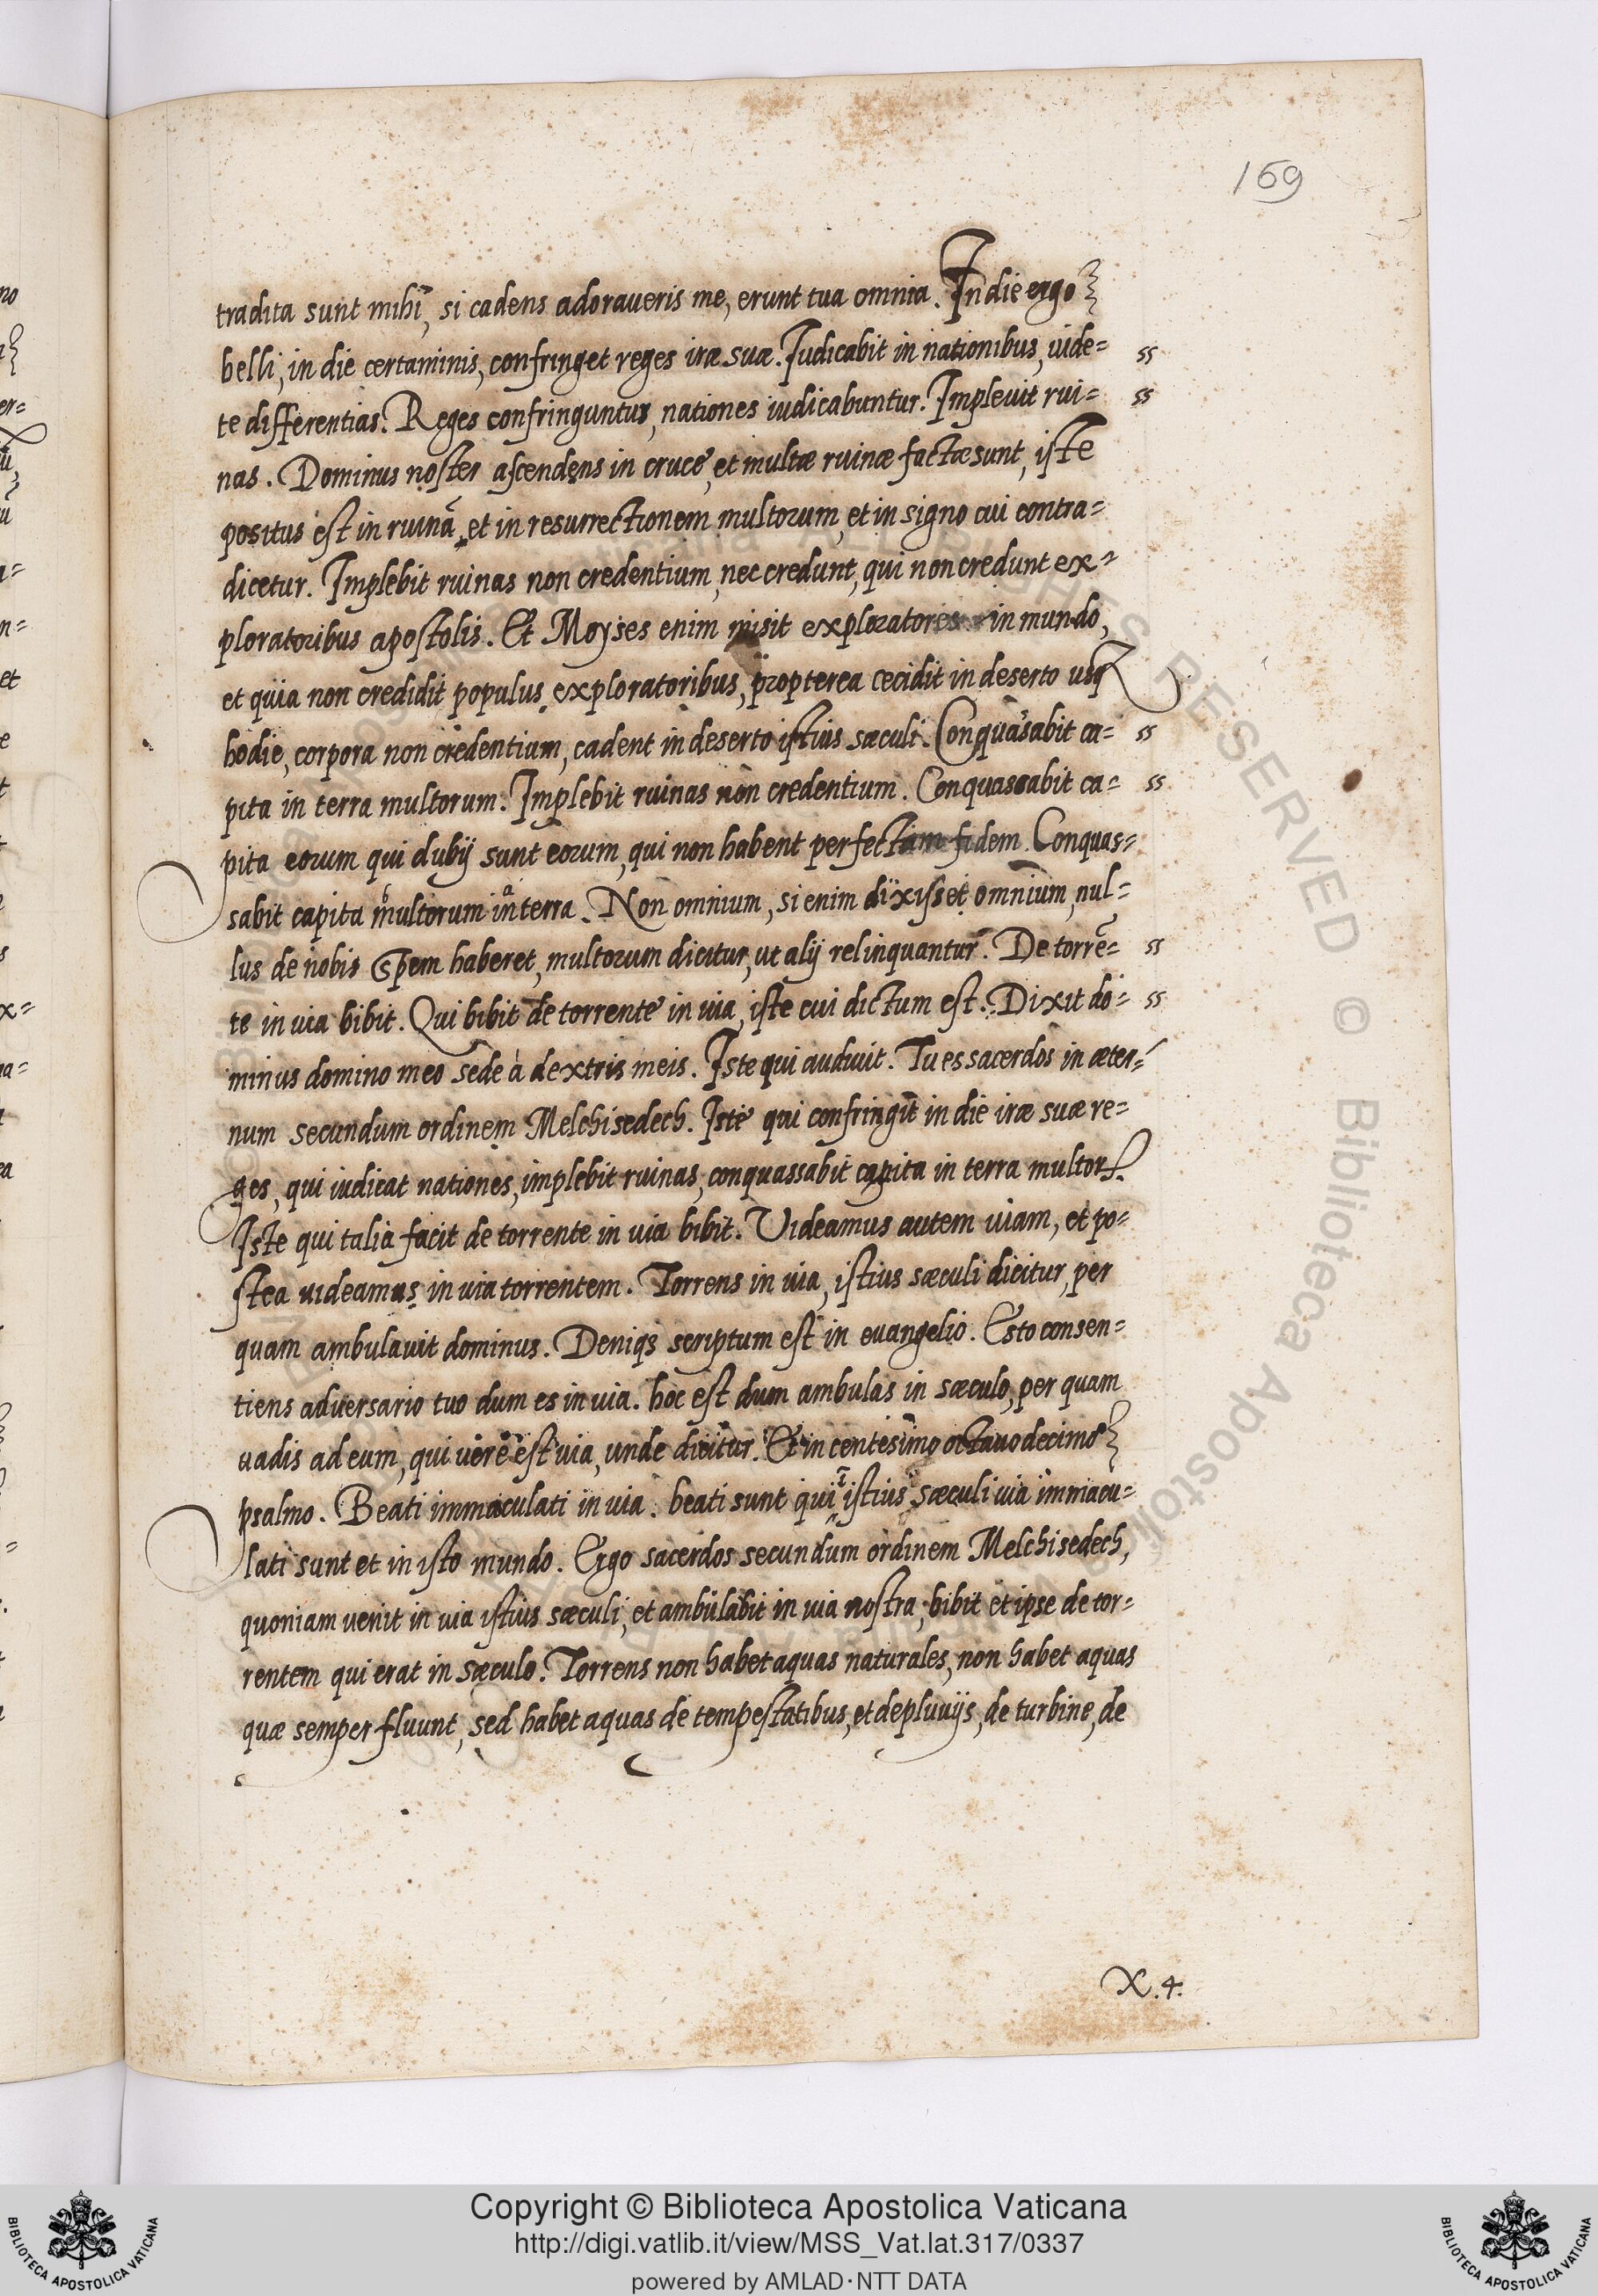 169
tradita sunt mihi, si cadens adoraveris me, erunt tua omnia. In die ergo
belli, in die certaminis, confringet reges iræ suæ. Iudicabit in nationibus, uide= ss
te differentias. Reges confringuntur, nationes iudicabuntur. Implevit rui= ss
nas. Dominus noster ascendens in cruce, et multæ ruinæ factæ sunt, iste
positus est in ruinā, et in resurrectionem multorum, et in signo cui contra=
dicetur. Implebit ruinas non credentium, nec credunt, qui non credunt ex=
ploratoribus apostolis. Et Moyses enim misit exploratores in mundo,
et quia non credidit populus exploratoribus, propterea cecidit in deserto usq
hodie, corpora non credentium, cadent in deserto istius sæculi. Conquasabit ca= ss
pita in terra multorum. Implebit ruinas non credentium. Conquassabit ca= ss
pita eorum qui dubij sunt eorum, qui non habent perfectam fidem. Conquas=
sabit capita multorum in terra. Non omnium, si enim dixisset omnium, nul=
lus de nobis spem haberet, multorum dicitur, ut alij relinquantur. De torrē= ss
te in uia bibit. Qui bibit de torrente in uia, iste cui dictum est. Dixit do= ss
minus domino meo sede à dextris meis. Iste qui audiuit. Tu es sacerdos in æter=
num secundum ordinem Melchisedech. Iste qui confringit in die iræ suæ re=
ges, qui iudicat nationes, implebit ruinas, conquassabit capita in terra multorꝝ.
Iste qui talia facit de torrente in via bibit. Uideamus autem uiam, et po=
stea uideamus in uia torrentem. Torrens in uia, istius sæculi dicitur, per
quam ambulauit dominus. Deniqs scriptum est in euangelio. Esto consen=
tiens adversario tuo dum es in uia. hoc est dum ambulas in sæculo, per quam
uadis ad eum, qui vere est uia, unde dicitur. Et in centesimo octauo decimo
psalmo. Beati immaculati in uia. beati sunt qui ī istius sæculi uia immacu=
lati sunt et in isto mundo. Ergo sacerdos secundum ordinem Melchisedech,
quoniam venit in uia istius sæculi, et ambulabit in uia nostra, bibit et ipse de tor=
rentem qui erat in sæculo. Torrens non habet aquas naturales, non habet aquas
quæ semper fluunt, sed habet aquas de tempestatibus, et de pluuijs, de turbine, de
X.4.
Copyright © Biblioteca Apostolica Vaticana
http://digi.vatlib.it/view/MSS_Vat.lat.317/0337
powered by AMLAD·NTT DATA